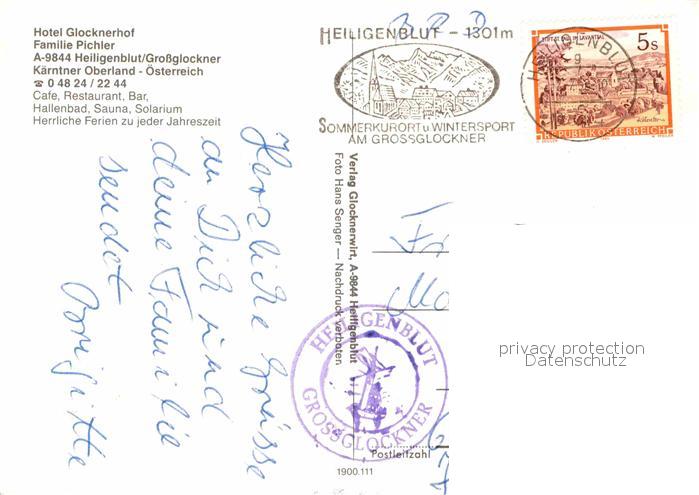 Hotel Glocknerhof
Familie Pichler
A-9844 Heiligenblut/Großglockner
Kärntner Oberland - Österreich
☎ 0 48 24 / 22 44
Cafe, Restaurant, Bar,
Hallenbad, Sauna, Solarium
Herrliche Ferien zu jeder Jahreszeit
HEILIGENBLUT - 1301m
SOMMERKURORT u. WINTERSPORT
AM GROSSGLOCKNER
HEILIGENBLUT
5 S
REPUBLIK ÖSTERREICH
Herzliche Grüsse
an Dich und
deine Familie
sendet
Brigitte
Verlag Glocknerwirt, A-9844 Heiligenblut
Foto Hans Senger — Nachdruck verboten
Fr
HEILIGENBLUT
GROSSGLOCKNER
privacy protection
Datenschutz
Postleitzahl
1900.111